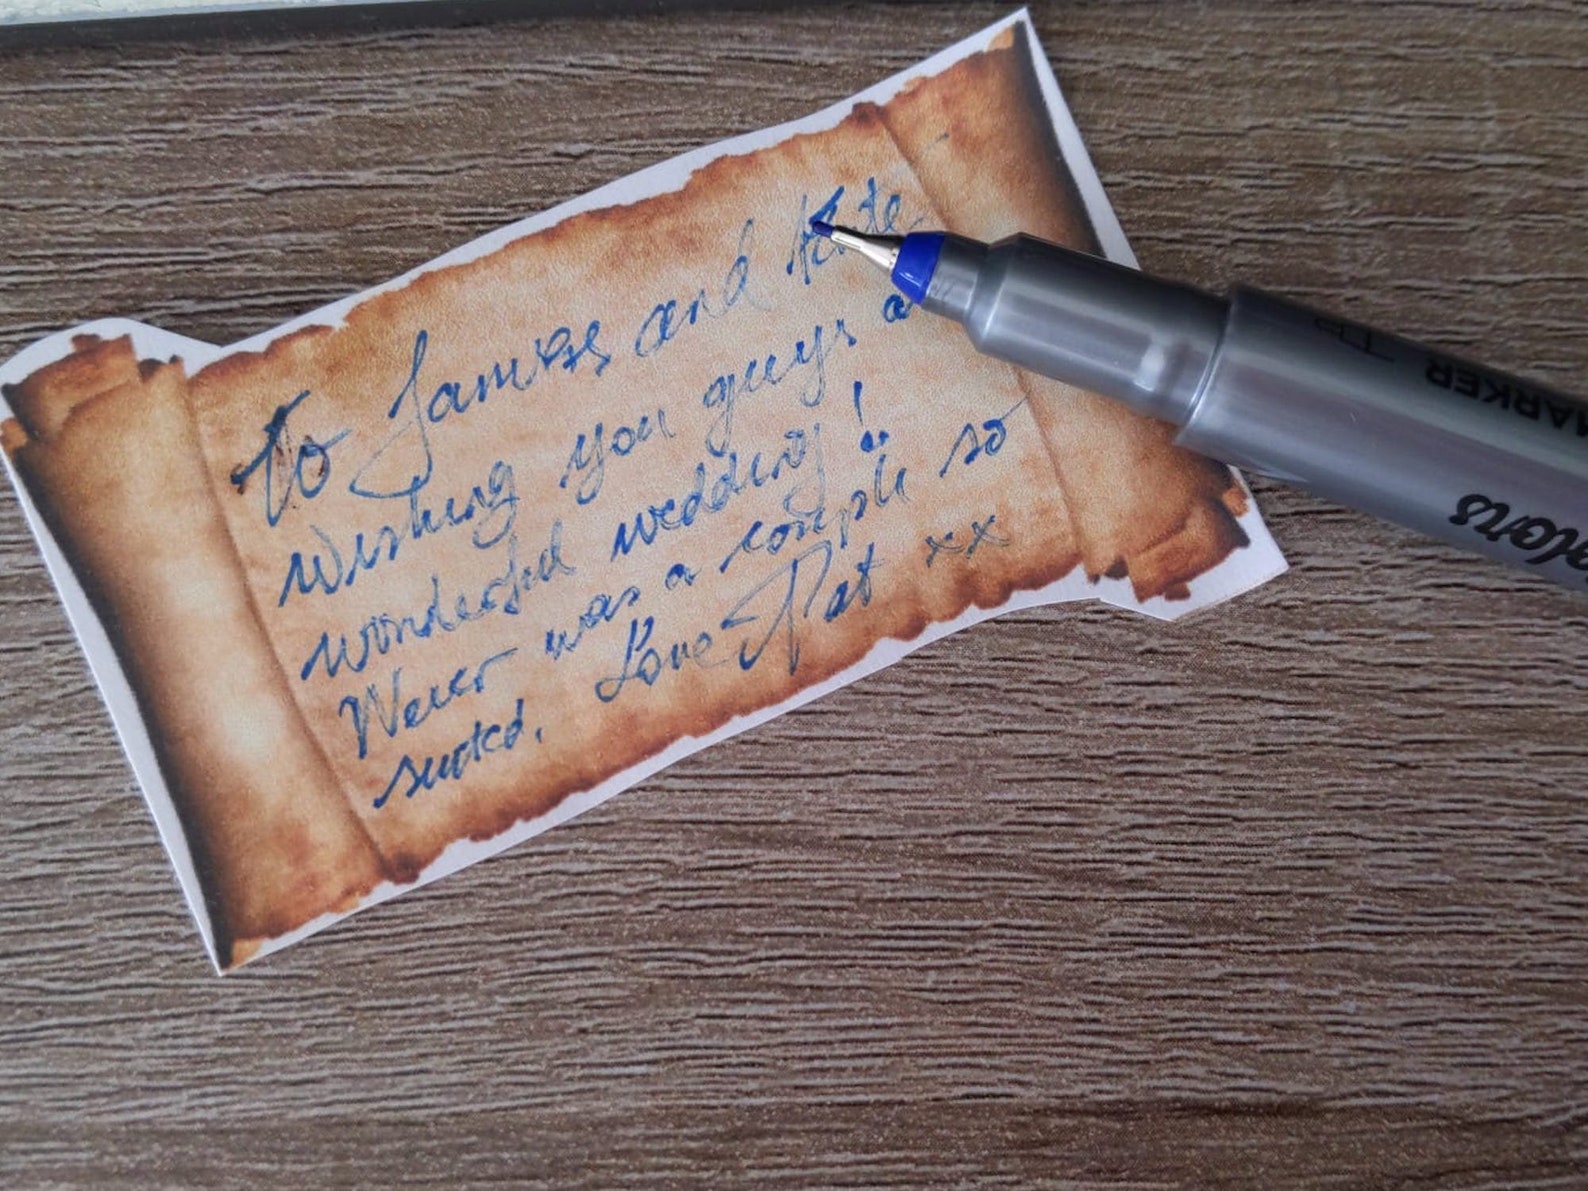 to James and Kate
Wishing you guys a
wonderful wedding!
Never was a couple so
suited. Love Pat xx
MARKER